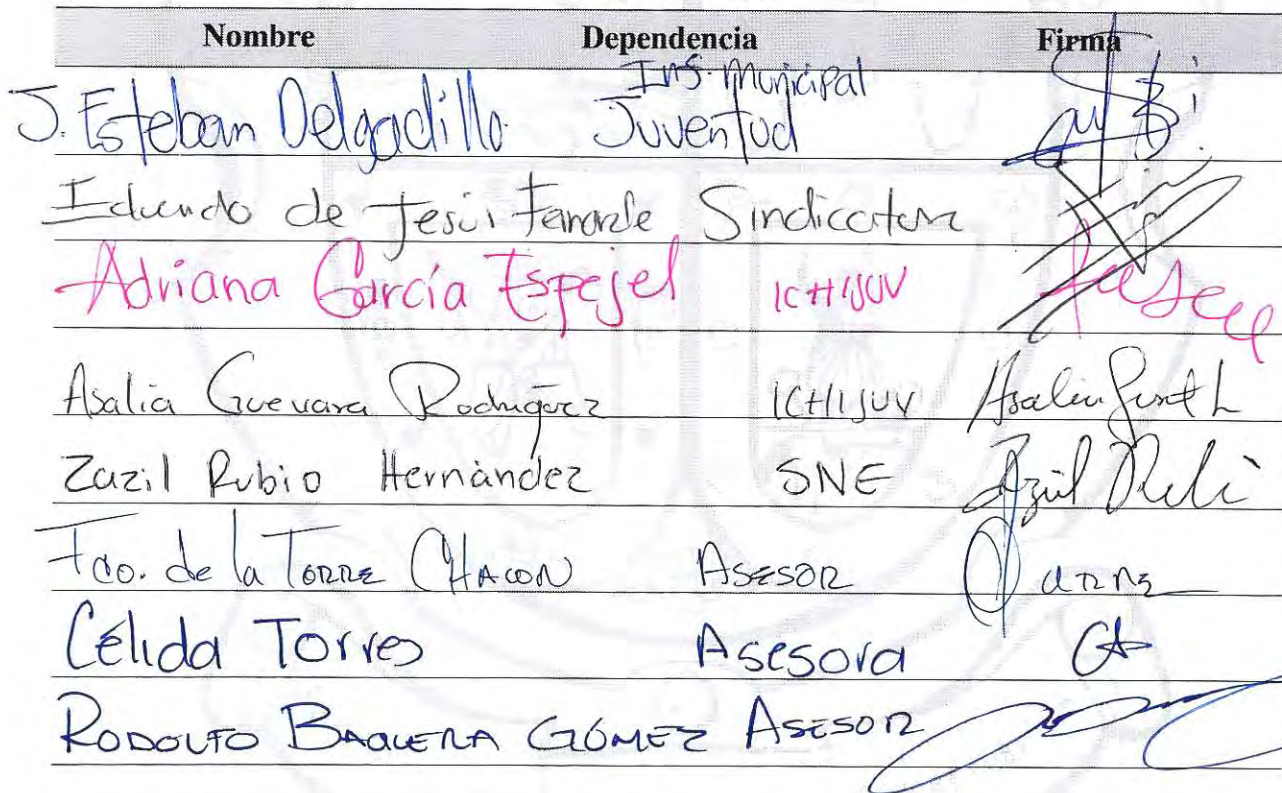 Nombre Dependencia Firma
J. Esteban Delgadillo Ins. Municipal Juventud
de Jesus Sindicatura
Adriana García Espejel ICHIJUV
Asalia Guevara Rodríguez ICHIJUV Asalia
Zazil Rubio Hernàndez SNE
Fco. de la Torre Chacon Asesor
Célida Torres Asesora
Rodolfo Baquera Gómez Asesor